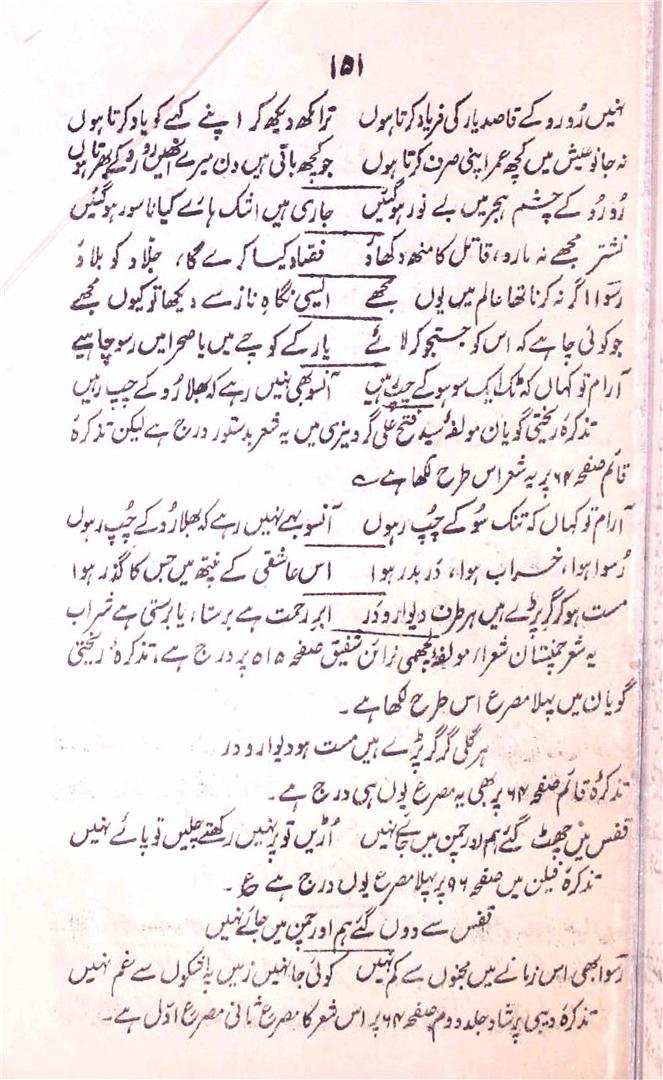 ۱۵۱
نہیں رُو رو کے قاصد یار کی فریاد کرتا ہوں ترا لکھ دیکھ کر اپنے کہے کو یاد کرتا ہوں
نہ جانو عیش میں کچھ عمر اپنی صرف کرتا ہوں جو کچھ باقی ہیں دن میرے انھیں رو رو کے بھرتا ہوں
رُو رُو کے چشم ہجر میں بے نور ہو گئیں جاری ہیں اشک ہائے کیا ناسور ہو گئیں
نشتر مجھے نہ مارو، قاتل کا منھ دکھاؤ فصّاد کیا کرے گا، جلّاد کو بلاؤ
رسوا اگر نہ کرنا تھا عالم میں یوں مجھے ایسی نگاہِ ناز سے دیکھا تو کیوں مجھے
جو کوئی چاہے کہ اس کو جستجو کر لائے یار کے کوچے میں یا صحرا میں رسوا چاہیے
آرام تو کہاں کہ ٹک ایک سو ہو کے چپ رہیں آنسو بھی نہیں رہے کہ بھلا رُو کے چپ رہیں
تذکرۂ ریختی گویان مولفہ سید فتح علی گردیزی میں یہ شعر بدستور درج ہے لیکن تذکرۂ
قائم صفحہ ۶۴ پر یہ شعر اس طرح لکھا ہے ؎
آرام تو کہاں کہ تنک سُو کے چُپ رہوں آنسو بہے نہیں رہے کہ بھلا رُو کے چُپ رہوں
رُسوا ہوا، خراب ہوا، دَر بدر ہوا اس عاشقی کے پنتھ میں جس کا گذر ہوا
مست ہو کر گر پڑے ہیں ہر طرف دیوار و دَر ابرِ رحمت ہے برستا، یا برستی ہے شراب
یہ شعر چمنستان شعراء مولفہ لچھمی نرائن شفیق صفحہ ۵۱۵ پر درج ہے، تذکرۂ ریختی
گویان میں پہلا مصرع اس طرح لکھا ہے۔
ہر گلی گر گر پڑے ہیں مست ہو دیوار و در
تذکرۂ قائم صفحہ ۶۴ پر بھی یہ مصرع یوں ہی درج ہے۔
قفس میں چھٹ گئے ہم اور چمن میں جائے نہیں اُڑیں تو پر نہیں رکھتے چلیں تو پائے نہیں
تذکرۂ فیلن میں صفحہ ۹۶ پر پہلا مصرع یوں درج ہے ع۔
قفس سے دوں گئے ہم اور چمن میں جائے نہیں
رسوا بھی اس زمانے میں مجنوں سے کم نہیں کوئی جا نہیں زمیں پہ اشکوں سے غم نہیں
تذکرہ دیبی پرشاد جلد دوم صفحہ ۶۴ پر اس شعر کا مصرع ثانی مصرع اوّل ہے۔